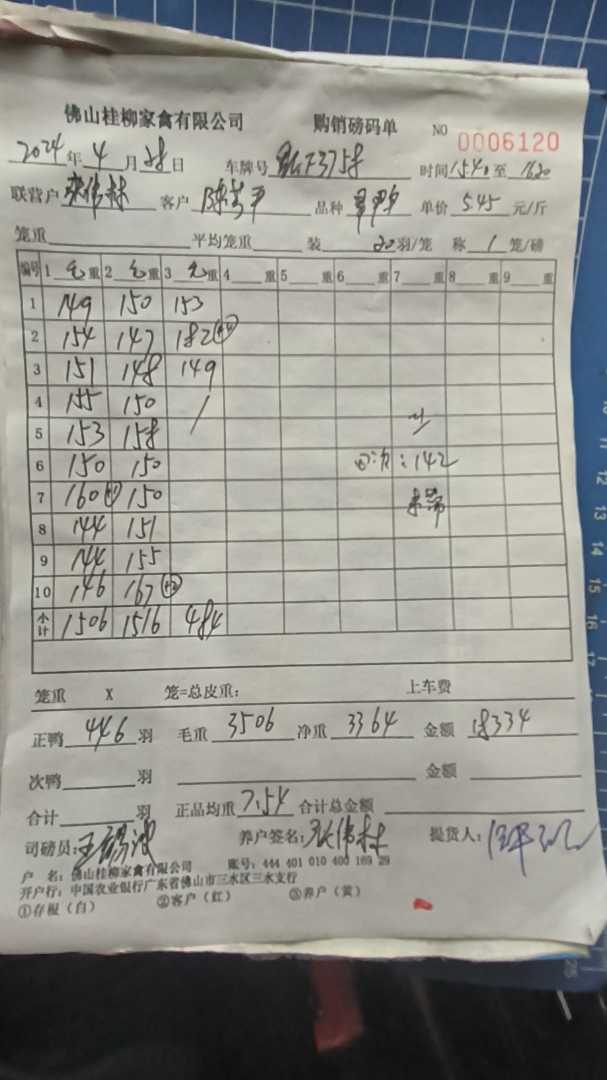 佛山桂柳家禽有限公司 购销磅码单 NO 0006120
2024年4月28日 车牌号 F3758 时间1540至1620
联营户 张伟林 客户 品种 单价 5.45 元/斤
笼重 平均笼重 装 20羽/笼 称 1 笼/磅
编号 1 毛重 2 毛重 3 毛重 4 重 5 重 6 重 7 重 8 重 9 重
1 149 150 153
2 154 147 182
3 151 148 149
4 155 150 /
5 153 158
6 150 150 :142
7 160 150
8 144 151
9 144 155
10 146 167
小计 1506 1516 484
笼重 X 笼=总皮重: 上车费
正鸭 446 羽 毛重 3506 净重 3364 金额 18334
次鸭 羽 金额
合计 羽 正品均重 7.54 合计总金额
司磅员:王锡波 养户签名:张伟林 提货人:
户 名:佛山桂柳家禽有限公司 账号:444 401 010 400 169 29
开户行:中国农业银行广东省佛山市三水区三水支行
①存根(白) ②客户(红) ③养户(黄)